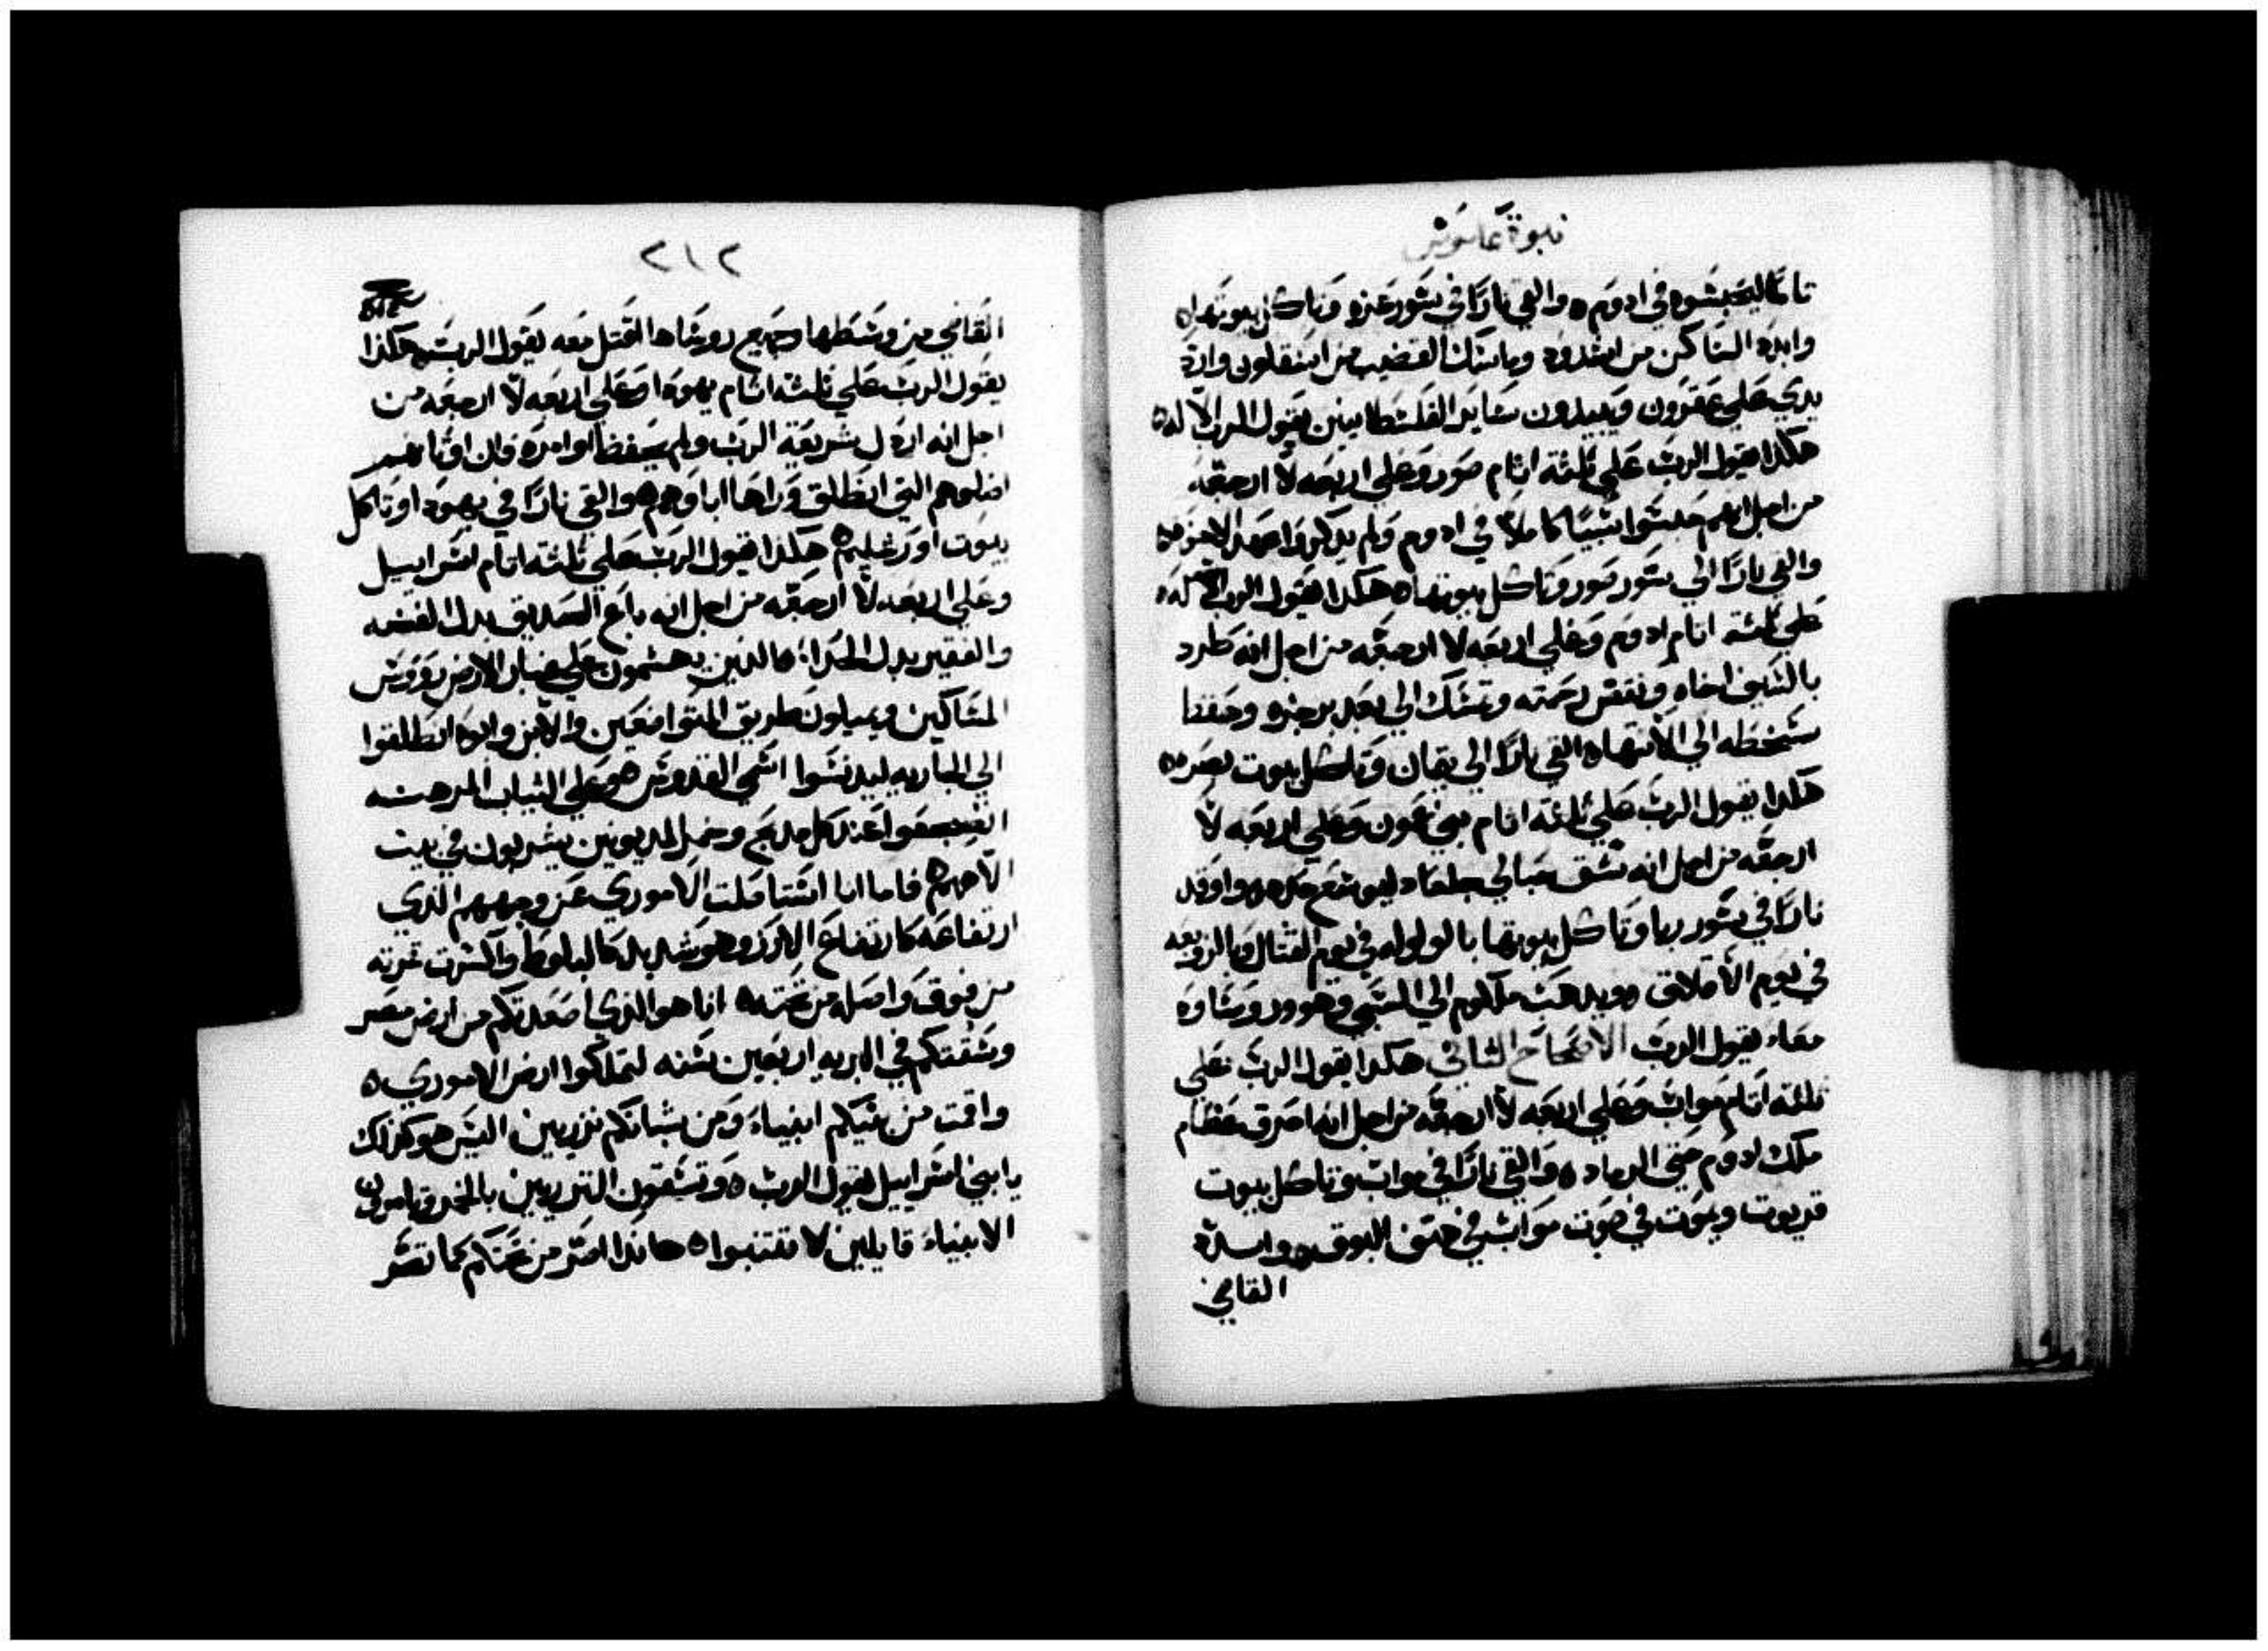 نبوة عاموش
تاما ليحبسوه في ادوم ه والقي نارًا في سور غزه وتاكل بيوتها ه
وابيد الساكن من اشدود وماسك القضيب من اسقلون وارد
يدي علي عقرون ويبيدون ساير الفلسطانيين يقول الرب الاله ه
هكدا يقول الرب علي ثلثة اثام صور وعلي اربعه لا ارجعه
من اجل انهم حبسوا سبيًا كاملاً في ادوم ولم يدكروا عهد الاخوه ه
والقي نارًا الي سور صور وتاكل بيوتها ه هكدا يقول الرب الاله
علي ثلثة اثام ادوم وعلي اربعه لا ارجعه من اجل انه طرد
بالسيف اخاه ونقض رحمته وتمسك الي بعد برجزه وحفظ
سخطه الي الانتهاه القي نارًا الي تيمان وتاكل بيوت بصره ه
هكدا يقول الرب علي ثلثة اثام بني عمون وعلي اربعه لا
ارجعه من اجل انه شق حبالي جلعاد ليوسع حده ه واوقد
نارًا في سور ربا وتاكل بيوتها بالولوله في يوم القتال وبالزوبعه
في يوم الاقلاق ه ويدهب ملكوم الي السبي وهو وروساوه
معاء يقول الرب الاصحاح الثاني هكدا يقول الرب علي
ثلثة اثام مواب وعلي اربعه لا ارجعه من اجل انه احرق عظام
ملك ادوم حتي الرماد ه والقي نارًا في مواب وتاكل بيوت
قريوت ويموت في صوت مواب في صوت البوق ه وابيد
القاضي
٢١٢
القاضي من وسطها وجميع روساها اقتل معه يقول الرب ه هكدا
يقول الرب علي ثلثة اثام يهودا وعلي اربعه لا ارجعه من
اجل انه اردل شريعة الرب ولم يحفظ اوامره فان اوثانهم
اضلوهم التي انطلق وراها اباوهم ه والقي نارًا في يهودا وتاكل
بيوت اورشليم ه هكدا يقول الرب علي ثلثة اثام اسراييل
وعلي اربعه لا ارجعه من اجل انه باع الصديق بدل الفضه
والفقير بدل الحدا؛ الدين يهشمون علي غبار الارض رووس
المساكين ويميلون طريق المتواضعين والابن وابوه انطلقوا
الي الجاريه ليدنسوا اسمي القدوس ه وعلي الثياب المرهنه
اضجعوا عند كل مدبح وخمر المديونين يشربون في بيت
الاههم ه فاما انا استاصلت الاموري عن وجههم الذي
ارتفاعه كارتفاع الارز وهو شديد كالبلوط وكسرت ثمرته
من فوق واصله من تحته ه انا هو الذي اصعدتكم من ارض مصر
وسقتكم في البريه اربعين سنه لتملكوا ارض الاموري ه
واقمت من بنيكم انبياء ومن شبانكم نزريين اليس هو كذلك
يا بني اسراييل يقول الرب ه وتسقون النزريين بالخمر وتامرون
الانبياء قايلين لا تتنبوا ه هاندا اصر من تحتكم كما تصر